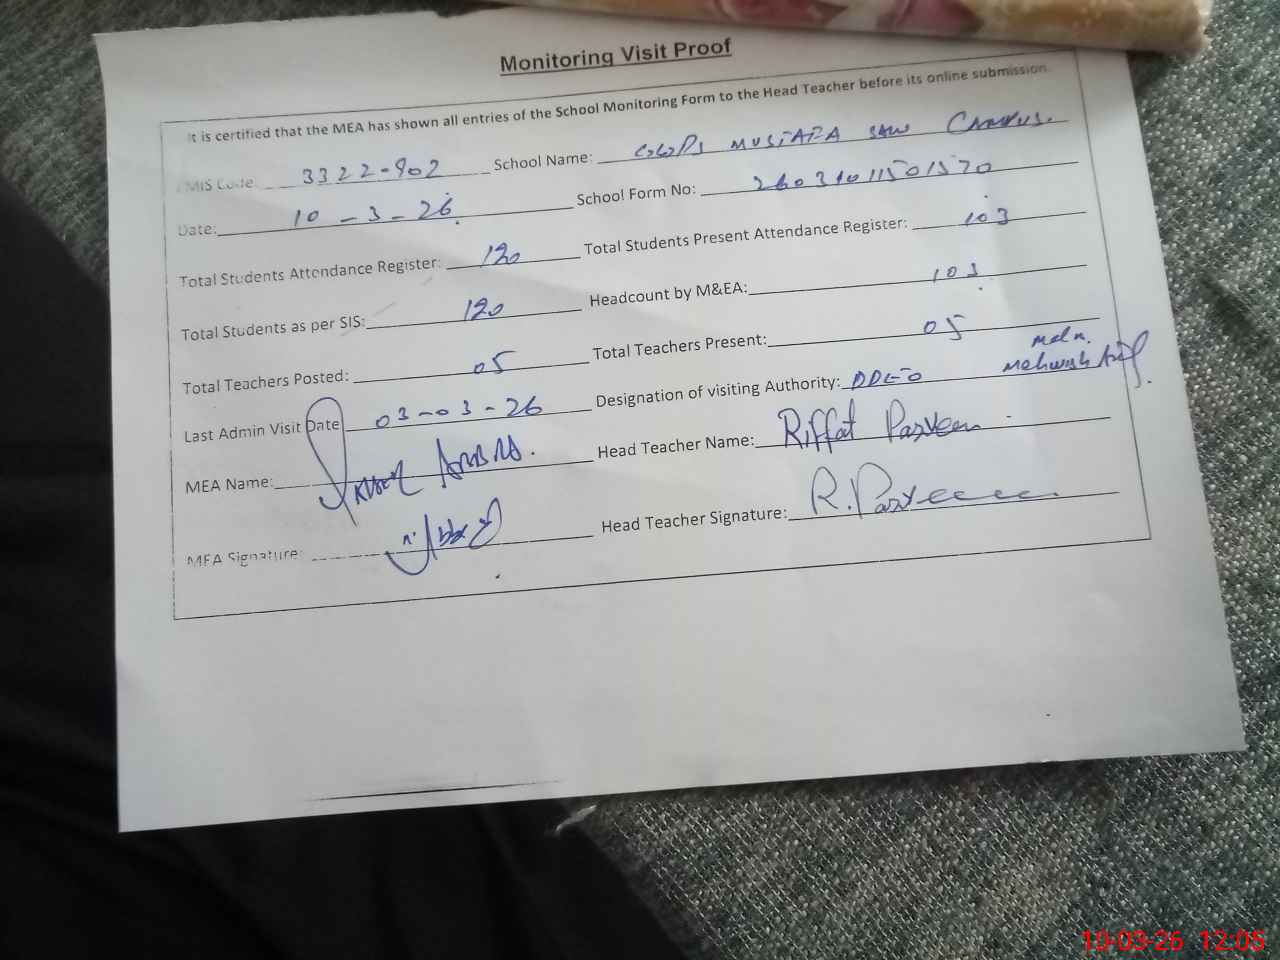 Monitoring Visit Proof
It is certified that the MEA has shown all entries of the School Monitoring Form to the Head Teacher before its online submission.
EMIS Code: 3322-902 School Name: MUSTAFA SAW CAMPUS.
Date: 10-3-26 School Form No: 26031011501570
Total Students Attendance Register: 120 Total Students Present Attendance Register: 103
Total Students as per SIS: 120 Headcount by M&EA: 103
Total Teachers Posted: 05 Total Teachers Present: 05
Last Admin Visit Date 03-03-26 Designation of visiting Authority: DDEO Mehwish
MEA Name: Head Teacher Name: Riffat Parveen
MEA Signature: Head Teacher Signature: R. Parveen
10-03-26 12:05